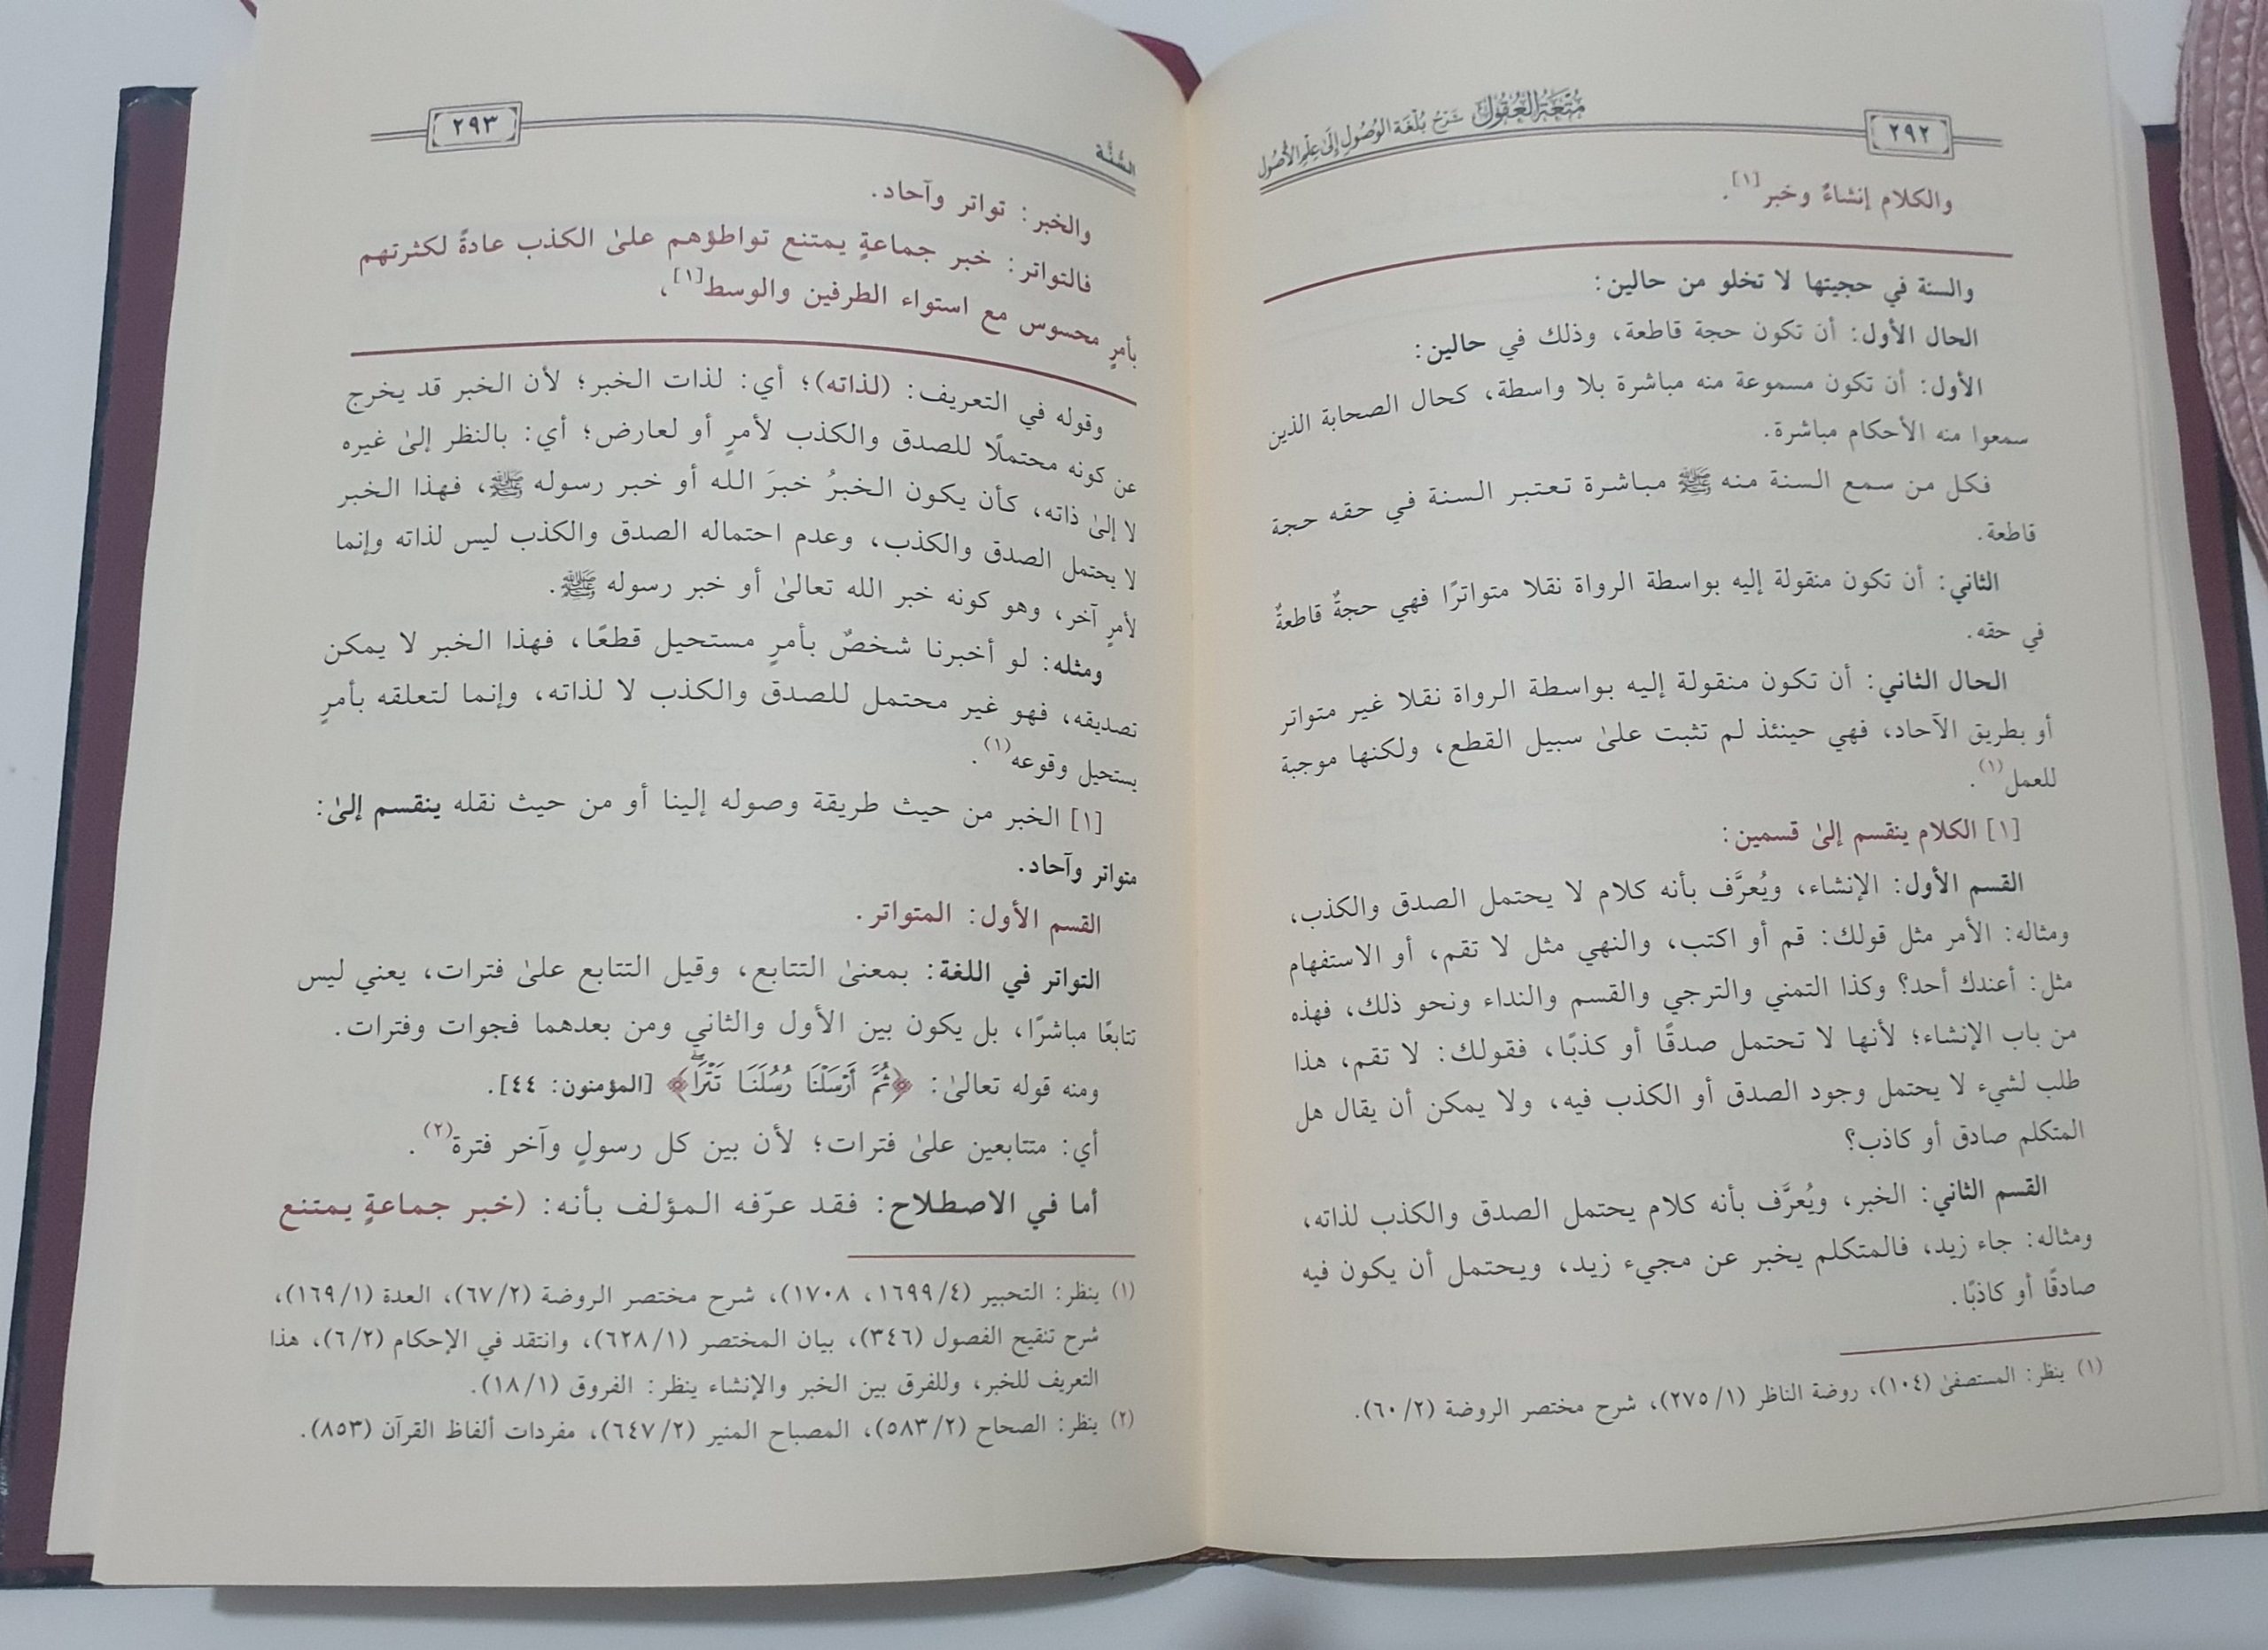 ٢٩٢
مُتْعَةُ العُقُولِ شَرْحُ بُلْغَةِ الوُصُولِ إِلَى عِلْمِ الأُصُولِ
والكلام إنشاءٌ وخبر[١].
والسنة في حجيتها لا تخلو من حالين:
الحال الأول: أن تكون حجة قاطعة، وذلك في حالين:
الأول: أن تكون مسموعة منه مباشرة بلا واسطة، كحال الصحابة الذين
سمعوا منه الأحكام مباشرة.
فكل من سمع السنة منه ﷺ مباشرة تعتبر السنة في حقه حجة
قاطعة.
الثاني: أن تكون منقولة إليه بواسطة الرواة نقلا متواترًا فهي حجةٌ قاطعةٌ
في حقه.
الحال الثاني: أن تكون منقولة إليه بواسطة الرواة نقلا غير متواتر
أو بطريق الآحاد، فهي حينئذ لم تثبت علىٰ سبيل القطع، ولكنها موجبة
للعمل(١).
[١] الكلام ينقسم إلىٰ قسمين:
القسم الأول: الإنشاء، ويُعرَّف بأنه كلام لا يحتمل الصدق والكذب،
ومثاله: الأمر مثل قولك: قم أو اكتب، والنهي مثل لا تقم، أو الاستفهام
مثل: أعندك أحد؟ وكذا التمني والترجي والقسم والنداء ونحو ذلك، فهذه
من باب الإنشاء؛ لأنها لا تحتمل صدقًا أو كذبًا، فقولك: لا تقم، هذا
طلب لشيء لا يحتمل وجود الصدق أو الكذب فيه، ولا يمكن أن يقال هل
المتكلم صادق أو كاذب؟
القسم الثاني: الخبر، ويُعرَّف بأنه كلام يحتمل الصدق والكذب لذاته،
ومثاله: جاء زيد، فالمتكلم يخبر عن مجيء زيد، ويحتمل أن يكون فيه
صادقًا أو كاذبًا.
(١) ينظر: المستصفىٰ (١٠٤)، روضة الناظر (٢٧٥/١)، شرح مختصر الروضة (٦٠/٢).
السُّنَّة
٢٩٣
والخبر: تواتر وآحاد.
فالتواتر: خبر جماعةٍ يمتنع تواطؤهم علىٰ الكذب عادةً لكثرتهم
بأمرٍ محسوس مع استواء الطرفين والوسط[١]،
وقوله في التعريف: (لذاته)؛ أي: لذات الخبر؛ لأن الخبر قد يخرج
عن كونه محتملًا للصدق والكذب لأمرٍ أو لعارض؛ أي: بالنظر إلىٰ غيره
لا إلىٰ ذاته، كأن يكون الخبرُ خبرَ الله أو خبر رسوله ﷺ، فهذا الخبر
لا يحتمل الصدق والكذب، وعدم احتماله الصدق والكذب ليس لذاته وإنما
لأمرٍ آخر، وهو كونه خبر الله تعالىٰ أو خبر رسوله ﷺ.
ومثله: لو أخبرنا شخصٌ بأمرٍ مستحيل قطعًا، فهذا الخبر لا يمكن
تصديقه، فهو غير محتمل للصدق والكذب لا لذاته، وإنما لتعلقه بأمرٍ
يستحيل وقوعه(١).
[١] الخبر من حيث طريقة وصوله إلينا أو من حيث نقله ينقسم إلىٰ:
متواتر وآحاد.
القسم الأول: المتواتر.
التواتر في اللغة: بمعنىٰ التتابع، وقيل التتابع علىٰ فترات، يعني ليس
تتابعًا مباشرًا، بل يكون بين الأول والثاني ومن بعدهما فجوات وفترات.
ومنه قوله تعالىٰ: ﴿ثُمَّ أَرْسَلْنَا رُسُلَنَا تَتْرَا﴾ [المؤمنون: ٤٤].
أي: متتابعين علىٰ فترات؛ لأن بين كل رسولٍ وآخر فترة(٢).
أما في الاصطلاح: فقد عرّفه المؤلف بأنه: (خبر جماعةٍ يمتنع
(١) ينظر: التحبير (١٦٩٩/٤، ١٧٠٨)، شرح مختصر الروضة (٦٧/٢)، العدة (١٦٩/١)،
شرح تنقيح الفصول (٣٤٦)، بيان المختصر (٦٢٨/١)، وانتقد في الإحكام (٦/٢)، هذا
التعريف للخبر، وللفرق بين الخبر والإنشاء ينظر: الفروق (١٨/١).
(٢) ينظر: الصحاح (٥٨٣/٢)، المصباح المنير (٦٤٧/٢)، مفردات ألفاظ القرآن (٨٥٣).